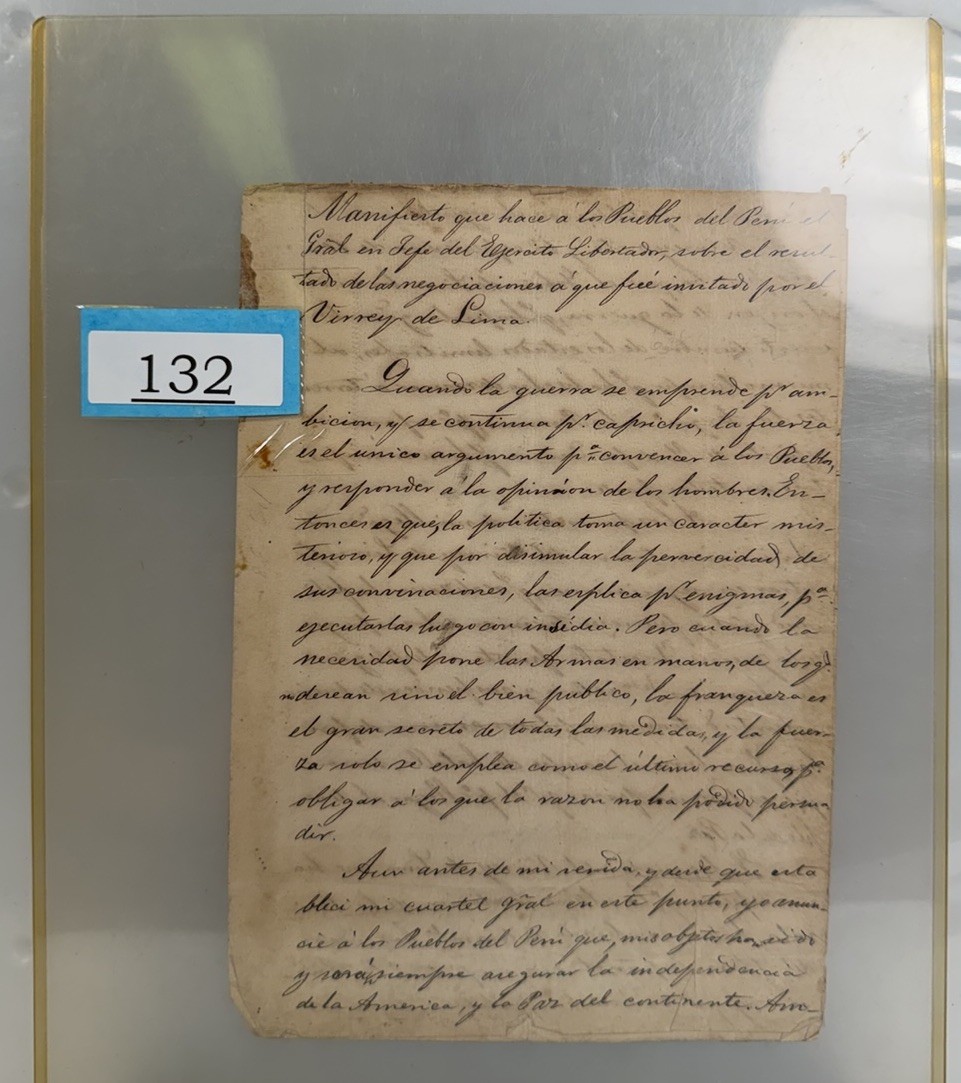 132
Manifiesto que hace á los Pueblos del Perú el
Gral en Jefe del Ejercito Libertador, sobre el resul-
tado de las negociaciones á que fué invitado por el
Virrey de Lima.
Quando la guerra se emprende pr. am-
bicion, y se continua pr. capricho, la fuerza
es el unico argumento pa. convencer á los Pueblos,
y responder á la opinion de los hombres. En-
tonces es que, la politica toma un caracter mis-
terioso, y que por disimular la pervercidad de
sus convinaciones, las esplica pr. enigmas, pa.
ejecutarlas luego con insidia. Pero cuando la
necesidad pone las Armas en manos, de los q.
no desean sino el bien publico, la franqueza es
el gran secreto de todas las medidas, y la fuer-
za solo se emplea como el último recurso, pa.
obligar á los que la razon no ha podido persua
dir.
Aun antes de mi venida, y desde que esta
bleci mi cuartel Gral en este punto, yo anun-
cié á los Pueblos del Perú que, mis objetos han sido
y serán siempre asegurar la independencia
de la America, y la Paz del continente.